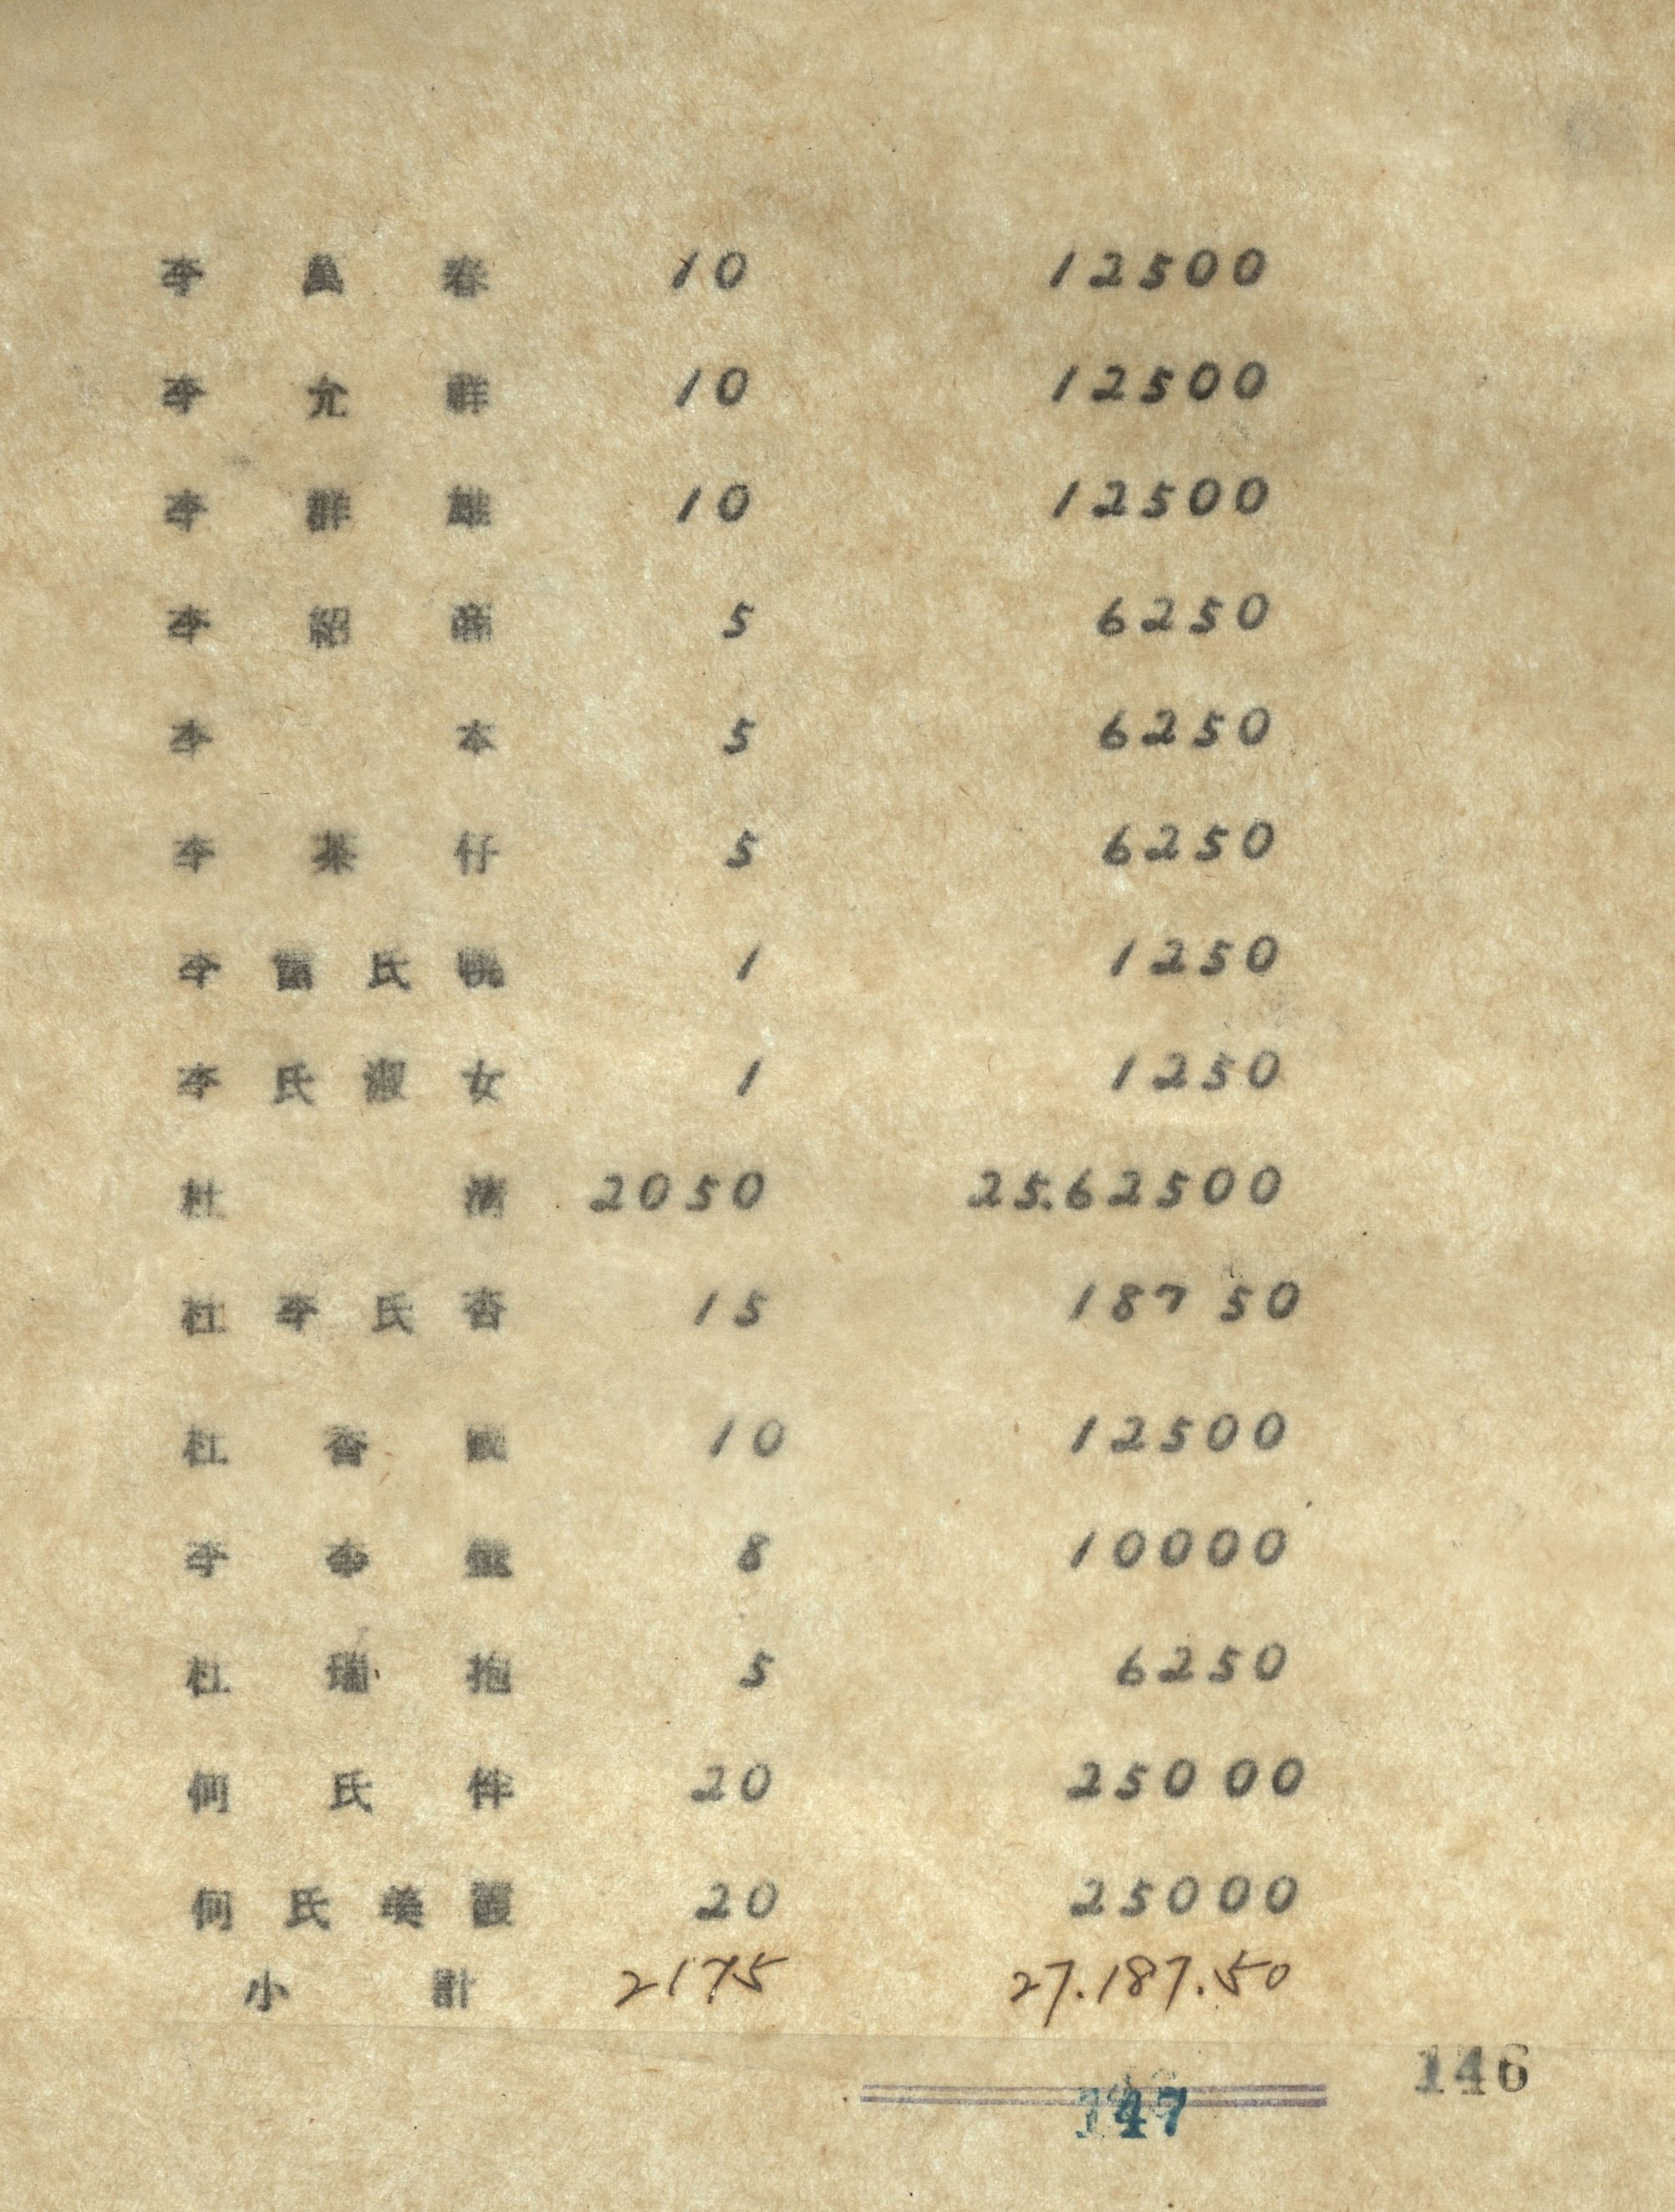 李 萬 春 10 12500
李 允 祥 10 12500
李 群 雄 10 12500
李 紹 5 6250
李 本 5 6250
李 茶 仔 5 6250
李 氏 1 1250
李 氏 淑 女 1 1250
杜 清 2050 25.62500
杜 李 氏 杏 15 187 50
杜 香 10 12500
李 8 10000
杜 瑞 抱 5 6250
何 氏 20 25000
何 氏 美 霞 20 25000
小 計 2175 27.187.50
146
147